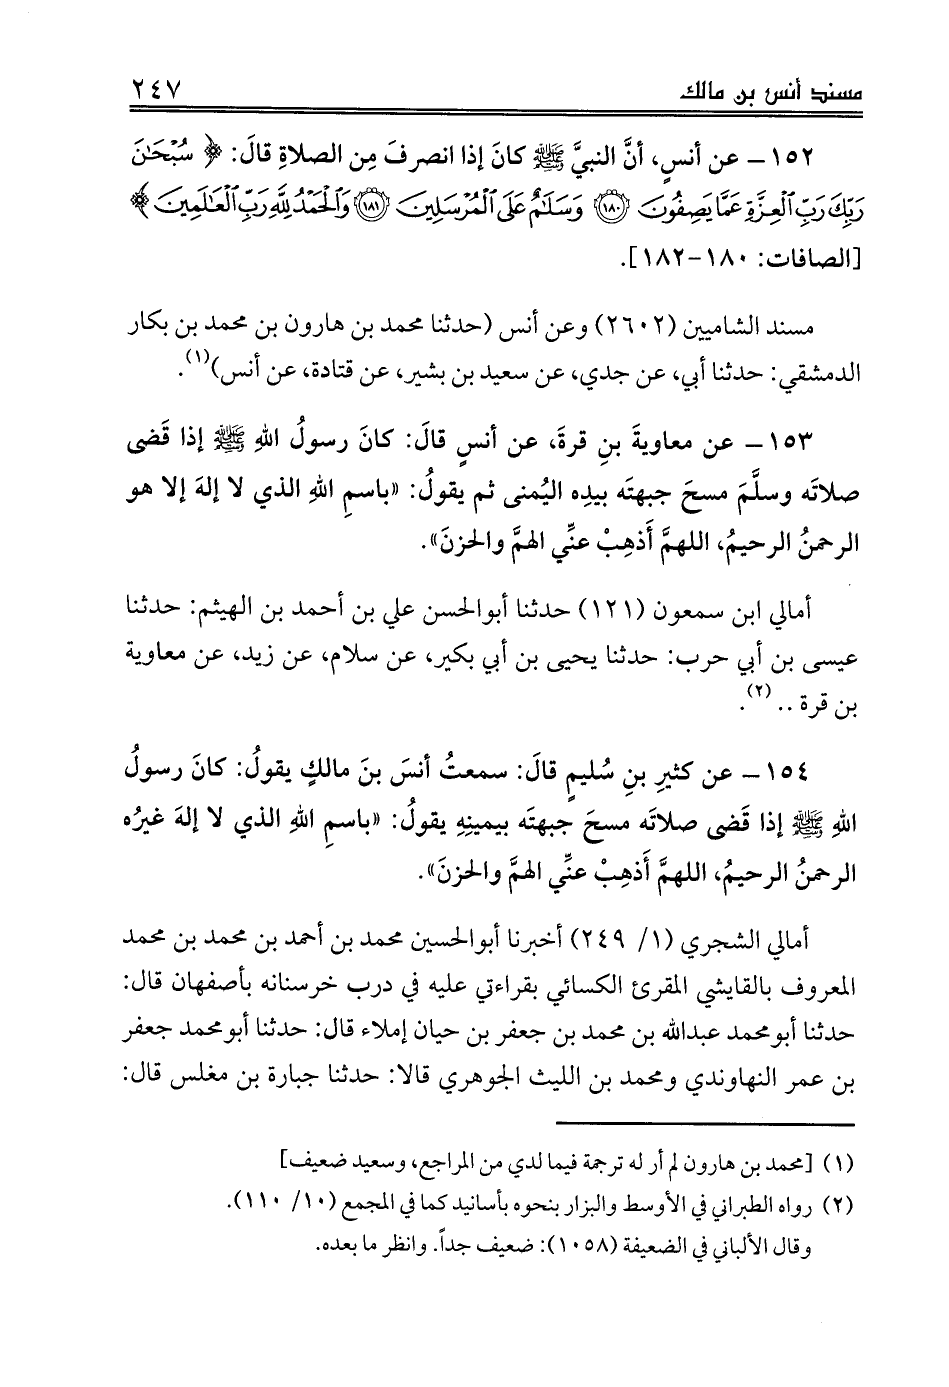 مسند أنس بن مالك ٢٤٧
١٥٢ – عن أنسٍ، أنَّ النبيَّ ﷺ كانَ إذا انصرفَ مِن الصلاةِ قالَ: ﴿ سُبْحَٰنَ
رَبِّكَ رَبِّ ٱلْعِزَّةِ عَمَّا يَصِفُونَ ۝١٨٠ وَسَلَٰمٌ عَلَى ٱلْمُرْسَلِينَ ۝١٨١ وَٱلْحَمْدُ لِلَّهِ رَبِّ ٱلْعَٰلَمِينَ ﴾
[الصافات: ١٨٠-١٨٢].
مسند الشاميين (٢٦٠٢) وعن أنس (حدثنا محمد بن هارون بن محمد بن بكار
الدمشقي: حدثنا أبي، عن جدي، عن سعيد بن بشير، عن قتادة، عن أنس)(١).
١٥٣ – عن معاويةَ بنِ قرةَ، عن أنسٍ قالَ: كانَ رسولُ اللهِ ﷺ إذا قَضى
صلاتَه وسلَّمَ مسحَ جبهتَه بيدِه اليُمنى ثم يقولُ: «باسمِ اللهِ الذي لا إلهَ إلا هو
الرحمنُ الرحيمُ، اللهمَّ أَذهِبْ عنِّي الهمَّ والحزنَ».
أمالي ابن سمعون (١٢١) حدثنا أبوالحسن علي بن أحمد بن الهيثم: حدثنا
عيسى بن أبي حرب: حدثنا يحيى بن أبي بكير، عن سلام، عن زيد، عن معاوية
بن قرة .. (٢).
١٥٤ – عن كثيرِ بنِ سُليمٍ قالَ: سمعتُ أنسَ بنَ مالكٍ يقولُ: كانَ رسولُ
اللهِ ﷺ إذا قَضى صلاتَه مسحَ جبهتَه بيمينِهِ يقولُ: «باسمِ اللهِ الذي لا إلهَ غيرُه
الرحمنُ الرحيمُ، اللهمَّ أَذهِبْ عنِّي الهمَّ والحزنَ».
أمالي الشجري (١/ ٢٤٩) أخبرنا أبوالحسين محمد بن أحمد بن محمد بن محمد
المعروف بالقايشي المقرئ الكسائي بقراءتي عليه في درب خرسنانه بأصفهان قال:
حدثنا أبومحمد عبدالله بن محمد بن جعفر بن حيان إملاء قال: حدثنا أبومحمد جعفر
بن عمر النهاوندي ومحمد بن الليث الجوهري قالا: حدثنا جبارة بن مغلس قال:
(١) [محمد بن هارون لم أر له ترجمة فيما لدي من المراجع، وسعيد ضعيف]
(٢) رواه الطبراني في الأوسط والبزار بنحوه بأسانيد كما في المجمع (١٠/ ١١٠).
وقال الألباني في الضعيفة (١٠٥٨): ضعيف جداً. وانظر ما بعده.